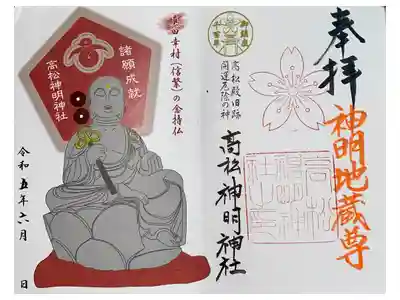 奉拝
神明地蔵尊
高松殿旧跡
開運厄除の神
高松神明神社
真田幸村(信繁)の念持仏
諸願成就
高松神明神社
令和五年六月 日